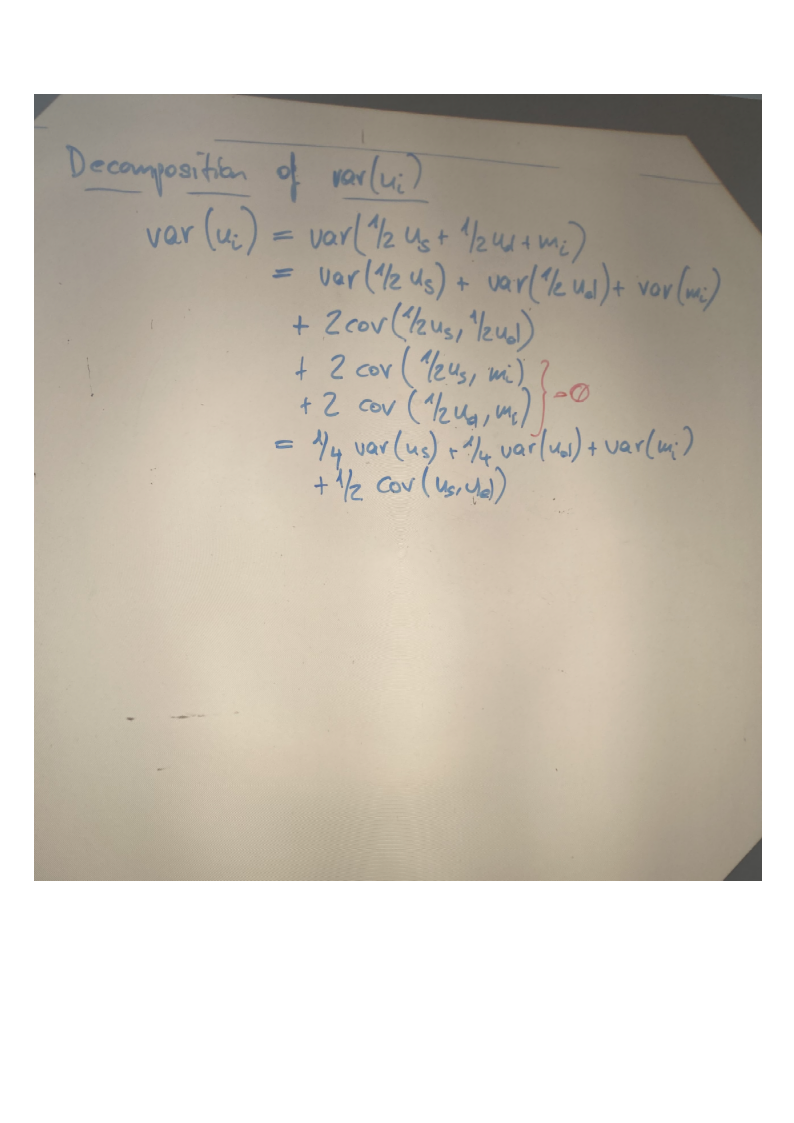 Decomposition of var(u_i)
var(u_i) = var(1/2 u_s + 1/2 u_d + m_i)
= var(1/2 u_s) + var(1/2 u_d) + var(m_i)
+ 2 cov(1/2 u_s, 1/2 u_d)
+ 2 cov(1/2 u_s, m_i)
+ 2 cov(1/2 u_d, m_i) } = 0
= 1/4 var(u_s) + 1/4 var(u_d) + var(m_i)
+ 1/2 cov(u_s, u_d)